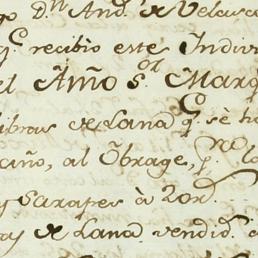 go D.n And.s de Velasc
q.e recibio este Indiv
el Amo s.or Marq
libras de Lana q.e sè he
caño, al Obrage, p.a lo
y Sarapes à 20r.
as de Lana vendid. a